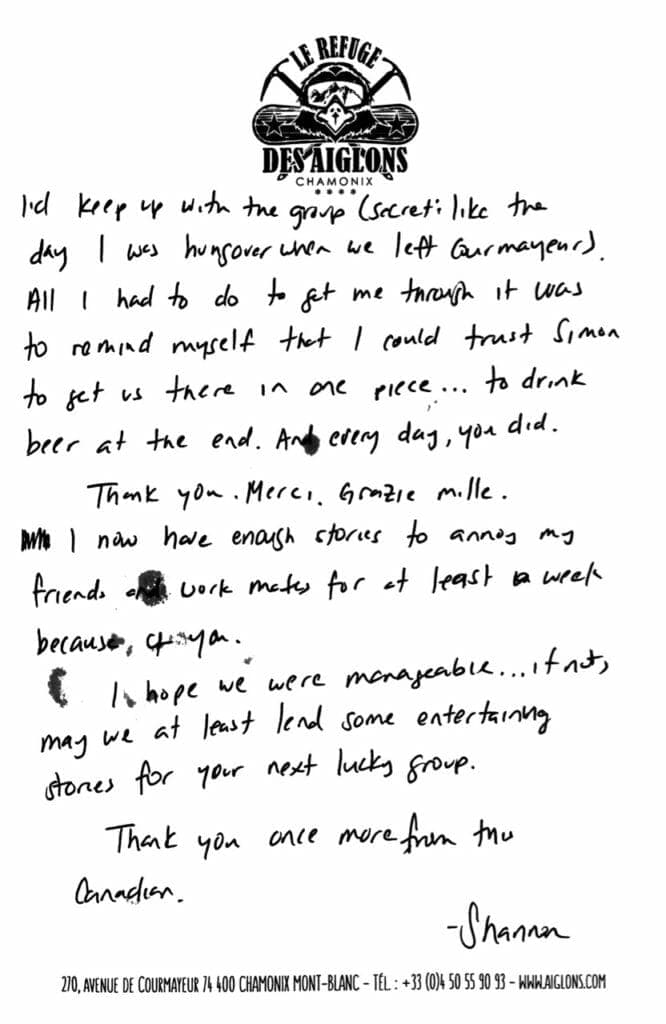 LE REFUGE
DES AIGLONS
CHAMONIX
I'd keep up with the group (secret: like the
day I was hungover when we left Courmayeur).
All I had to do to get me through it was
to remind myself that I could trust Simon
to get us there in one piece... to drink
beer at the end. And every day, you did.
Thank you. Merci. Grazie mille.
I now have enough stories to annoy my
friends and work mates for at least a week
because, of you.
I hope we were manageable... if not,
may we at least lend some entertaining
stories for your next lucky group.
Thank you once more from the
Canadian.
-Shannon
270, AVENUE DE COURMAYEUR 74 400 CHAMONIX MONT-BLANC - TÉL : +33 (0)4 50 55 90 93 - WWW.AIGLONS.COM